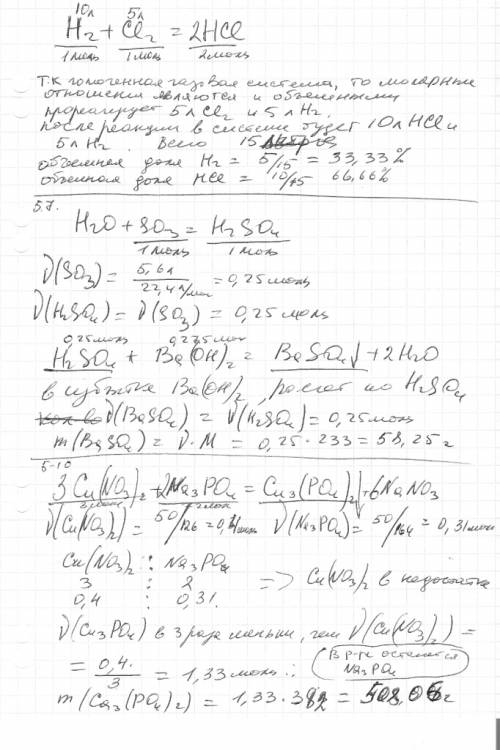 10л 5л
H₂ + Cl₂ = 2HCl
1моль 1моль 2моль
Т.к гомогенная газовая система, то молярные
отношения являются и объемными
прореагирует 5л Cl₂ и 5л H₂.
после реакции в системе будет 10л HCl и
5л H₂. Всего 15
объемная доля H₂ = 5/15 = 33,33%
объемная доля HCl = 10/15 66,66%
5.7.
H₂O + SO₃ = H₂SO₄
1моль 1моль
ν(SO₃) = 5,6л / 22,4л/моль = 0,25моль
ν(H₂SO₄) = ν(SO₃) = 0,25моль
0,25моль
H₂SO₄ + Ba(OH)₂ = BaSO₄↓ + 2H₂O
в избытке Ba(OH)₂, расчет по H₂SO₄
ν(BaSO₄) = ν(H₂SO₄) = 0,25моль
m(BaSO₄) = ν·M = 0,25·233 = 58,25г
5-10
3Cu(NO₃)₂ + 2Na₃PO₄ = Cu₃(PO₄)₂↓ + 6NaNO₃
3моль 2моль
ν(Cu(NO₃)₂) = 50/126 = ν(Na₃PO₄) = 50/164 = 0,31моль
Cu(NO₃)₂ : Na₃PO₄
3 : 2 => Cu(NO₃)₂ в недостатке
0,4 : 0,31.
ν(Cu₃PO₄) в 3 раза меньше, чем ν(Cu(NO₃)₂) =
= 0,4·/3 = 1,33моль
В р-ре останется
Na₃PO₄
m(Cu₃(PO₄)₂) = 1,33·382 =